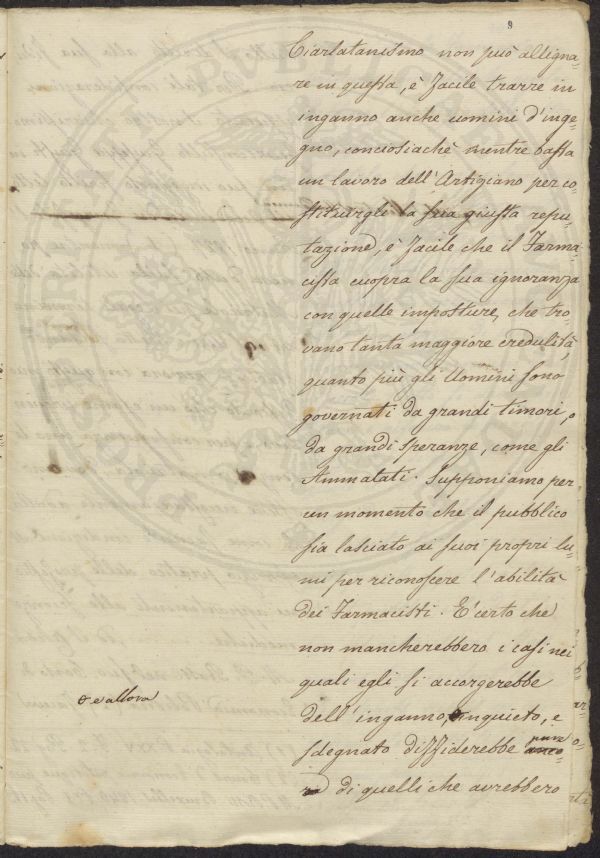 9
Ciarlatanismo non può alligna-
re in questa, è facile trarre in
inganno anche uomini d'inge-
gno, conciosiachè mentre basta
un lavoro dell'Artigiano per co-
stituirgli la sua giusta repu-
tazione, è facile che il Farma-
cista cuopra la sua ignoranza
con quelle imposture, che tro
vano tanta maggiore credulità,
quanto più gli Uomini sono
governati da grandi timori, o
da grandi speranze, come gli
Ammalati. Supponiamo per
un momento che il pubblico
sia lasciato ai suoi proprj lu-
mi per riconoscere l'abilità
dei Farmacisti. E' certo che
non mancherebbero i casi nei
quali egli si accorgerebbe
e allora
dell'inganno, inquieto, e
sdegnato diffiderebbe pure
di quelli che avrebbero